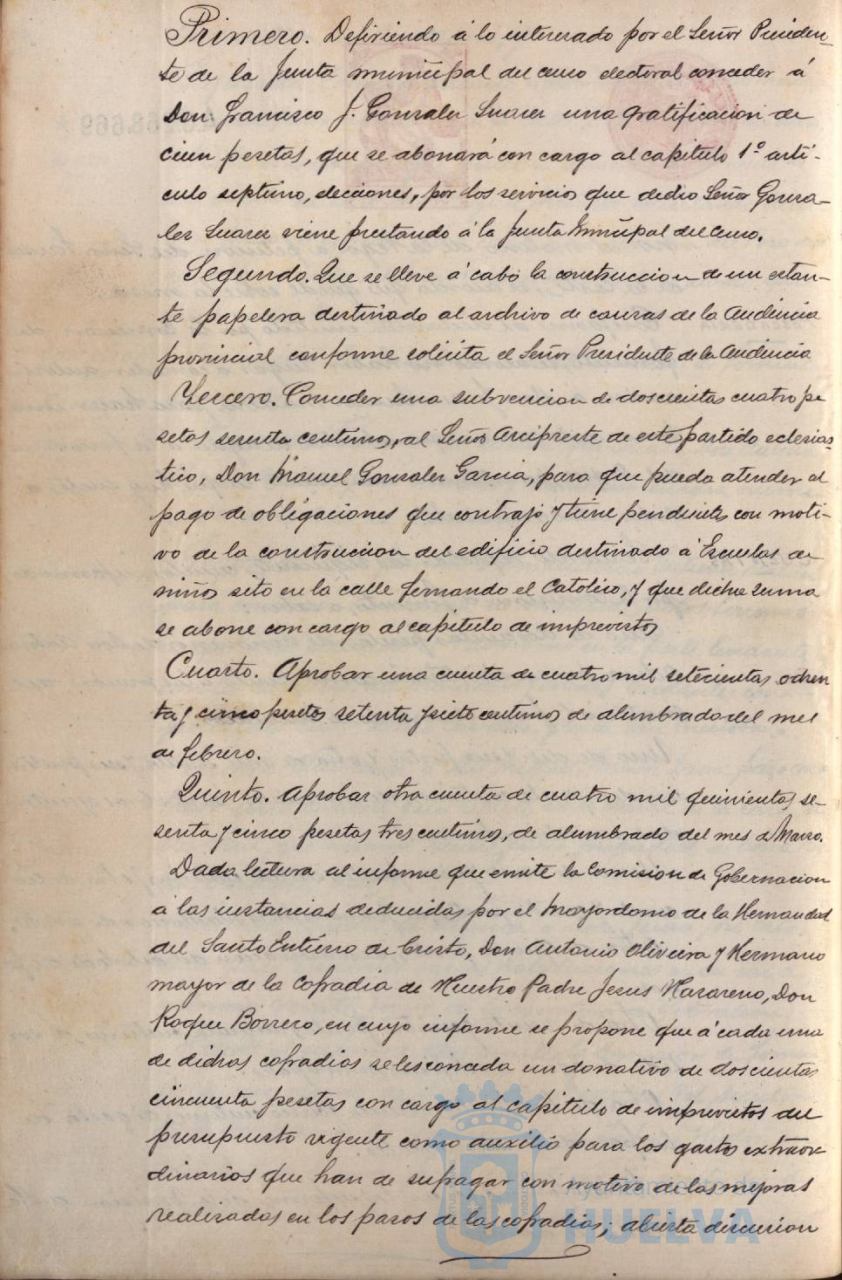 Primero. Defiriendo á lo interesado por el Señor Presiden-
te de la Junta municipal del censo electoral conceder á
Don Francisco J. Gonzalez Suarez una gratificacion de
cien pesetas, que se abonará con cargo al capitulo 1º arti-
culo septimo, elecciones, por los servicios que dicho Señor Gonza-
lez Suarez viene prestando á la Junta municipal del censo.
Segundo. Que se lleve á cabo la construccion de un estan-
te papelera destinado al archivo de causas de la Audiencia
provincial conforme solicita el Señor Presidente de la Audiencia
Tercero. Conceder una subvencion de doscientas cuatro pe
setas sesenta centimos, al Señor Arcipreste de este partido eclesias
tico, Don Manuel Gonzalez Garcia, para que pueda atender al
pago de obligaciones que contrajo y tiene pendientes con moti-
vo de la construccion del edificio destinado á Escuelas de
niños sito en la calle Fernando el Catolico, y que dicha suma
se abone con cargo al capitulo de imprevistos
Cuarto. Aprobar una cuenta de cuatro mil setecientas ochen
ta y cinco pesetas setenta y siete centimos de alumbrado del mes
de febrero.
Quinto. Aprobar otra cuenta de cuatro mil quinientas se-
senta y cinco pesetas tres centimos, de alumbrado del mes de Marzo.
Dada lectura al informe que emite la Comision de Gobernacion
á las instancias deducidas por el Mayordomo de la Hermandad
del Santo Entierro de Cristo, Don Antonio Oliveira y Hermano
mayor de la Cofradia de Nuestro Padre Jesus Nazareno, Don
Roque Borrero, en cuyo informe se propone que á cada una
de dichas cofradias se les conceda un donativo de doscientas
cincuenta pesetas con cargo al capitulo de imprevistos del
presupuesto vigente como auxilio para los gastos extraor
dinarios que han de sufragar con motivo de las mejoras
realizadas en los pasos de las cofradias; abierta discusion
HUELVA